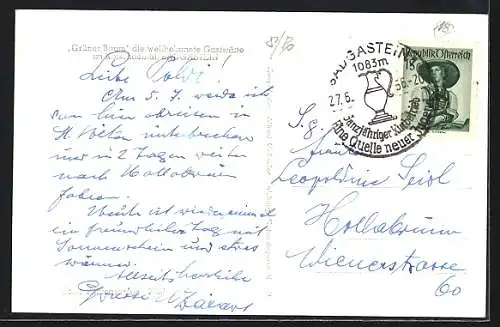 „Grüner Baum" die weltbekannte Gaststätte
Liebe Poldi!
Am 5. 7. werde ich
von hier abreisen in
St Veit unterbrechen
und in 2 Tagen weiter
nach Hollabrunn
fahren.
Heute ist wieder einmal
ein freundlicher Tag mit
Sonnenschein und etwas
wärmer.
Allseits herzliche
Grüsse
BADGASTEIN
1083m
27.6.
56-
ganzjähriger Kurbetrieb
Eine Quelle neuer Jugend
Republik Österreich
S. g.
Frau
Leopoldine Seidl
Hollabrunn
Wienerstrasse
60